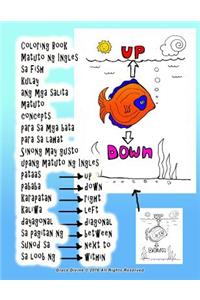 Coloring Book
Matuto ng Ingles
sa Fish
Kulay
ang mga Salita
Matuto
concepts
para sa mga bata
para sa Lahat
Sinong May gusto
upang Matuto ng Ingles
pataas up
pababa down
Karapatan right
Kaliwa left
dayagonal diagonal
sa pagitan ng between
sunod sa next to
sa loob ng within
up
Down
Grace Divine © 2016 All Rights Reserved